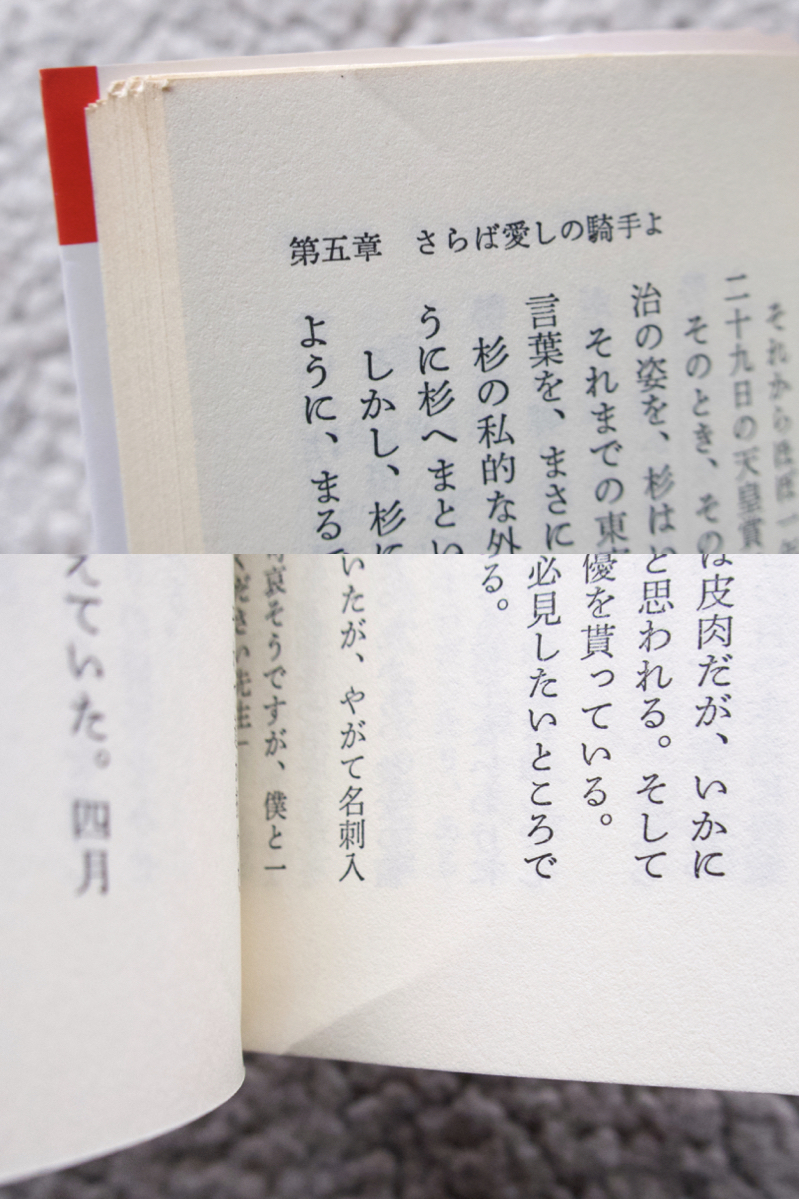 第五章 さらば愛しの騎手よ
それからほぼ一
二十九日の天皇賞
そのとき、その
治の姿を、杉は
それまでの東
言葉を、まさに
杉の私的な外
うに杉へまとい
しかし、杉に
ように、まる
は皮肉だが、いかに
と思われる。そして
優を貰っている。
必見したいところで
る。
いたが、やがて名刺入
哀そうですが、僕と一
ください先生
えていた。四月